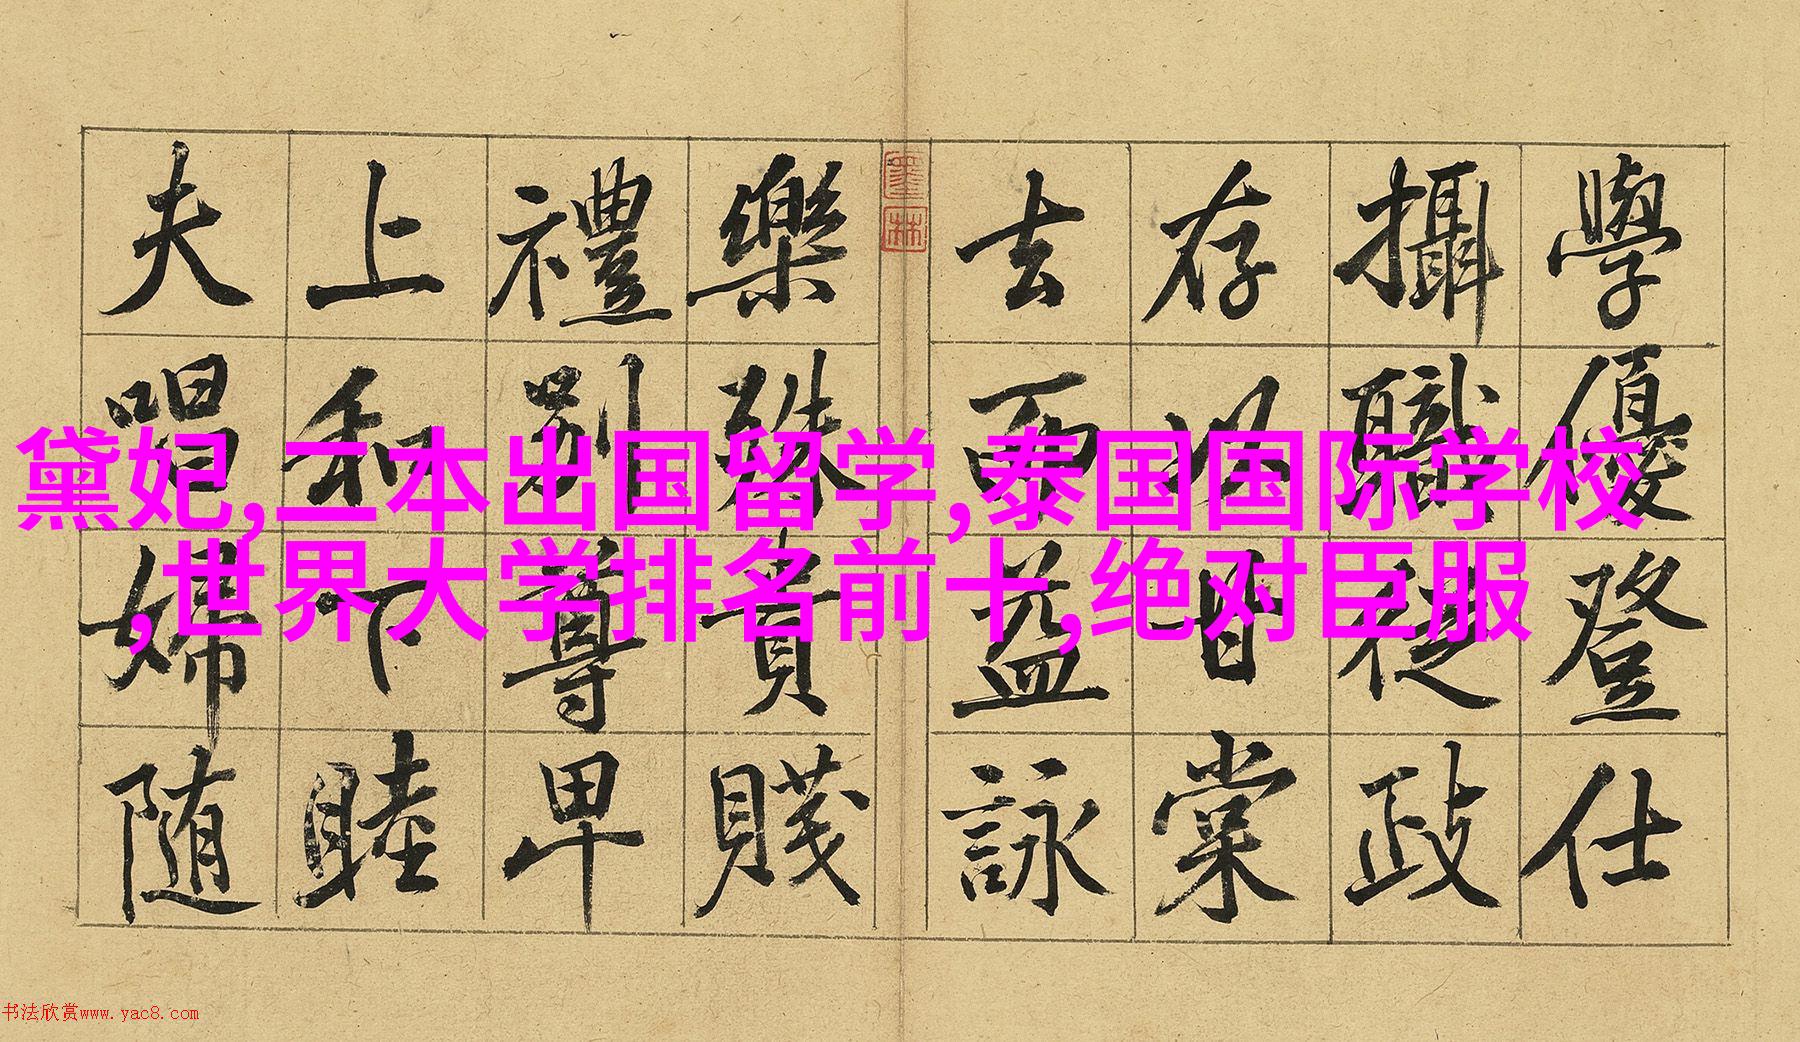 學優登仕
攝職從政
存以甘棠
去而益詠
樂殊貴賤
禮別尊卑
上和下睦
夫唱婦随
墨林
黛妃,二本出国留学,泰国国际学校
,世界大学排名前十,绝对臣服
书法欣赏www.yac8.com